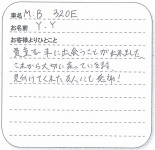 車名 M.B 320E
お名前 Y.Y
お客様よりひとこと
貴重な車に出会うことが出来ました。
これから大切に乗っていきます
見付けてくれた友人にも感謝!